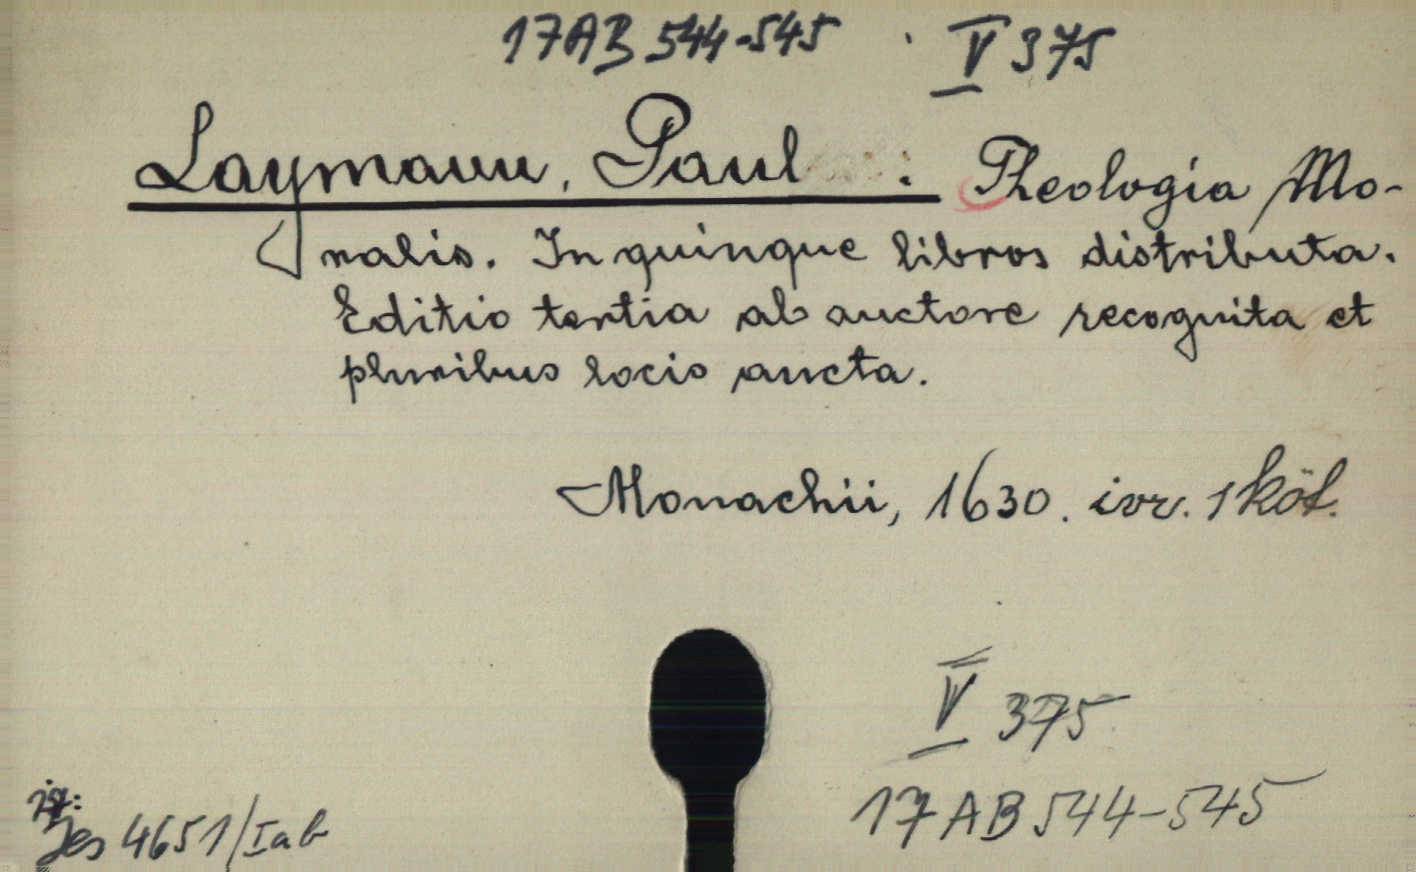 17AB 544-545 V 375
Laymann, Paul : Theologia Mo-
ralis. In quinque libros distributa.
Editio tertia ab auctore recognita et
pluribus locis aucta.
Monachii, 1630. ívr. 1 köt.
V 375
17AB 544-545
Jes 4651/I a b